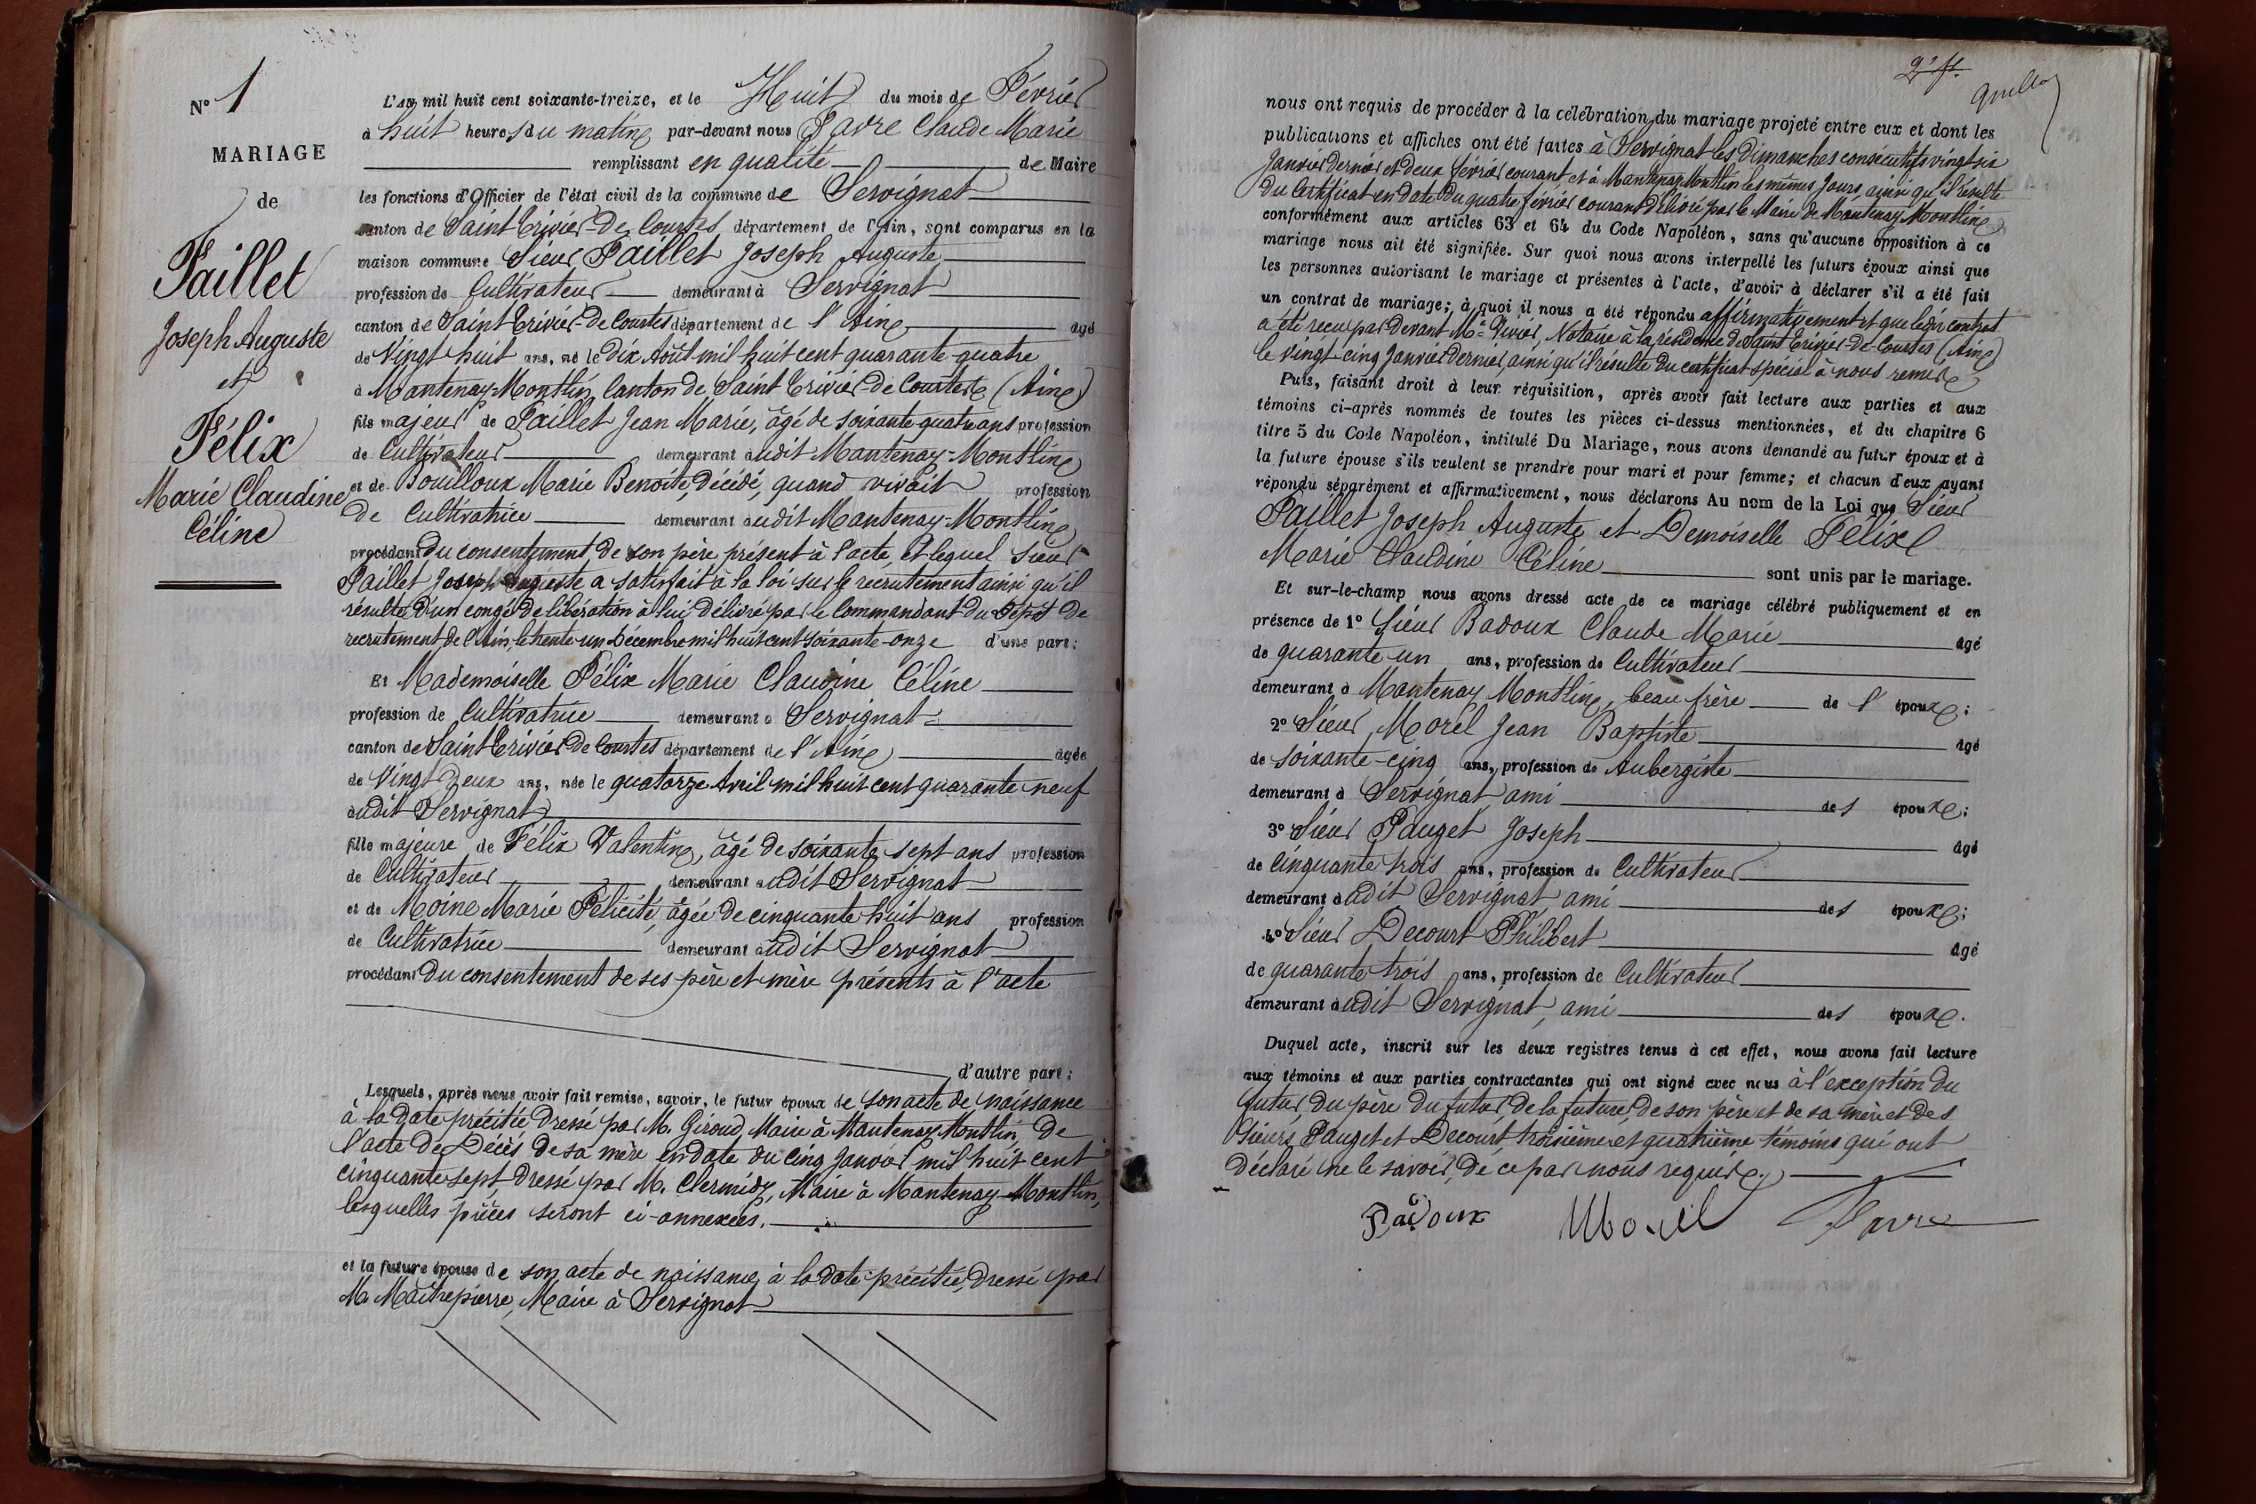 N° 1
MARIAGE
de
Paillet
Joseph Auguste
et
Félix
Marie Claudine
Céline
L'an mil huit cent soixante-treize, et le Huit du mois de Février
à huit heures du matin par-devant nous Favre Claude Marie
remplissant en qualité de Maire
les fonctions d'Officier de l'état civil de la commune de Servignat
canton de Saint Trivier-de-Courtes, département de l'Ain, sont comparus en la
maison commune Sieur Paillet Joseph Auguste
profession de Cultivateur demeurant à Servignat
canton de Saint Trivier-de-Courtes département de l'Ain agé
de Vingt huit ans, né le dix Août mil huit cent quarante-quatre
à Mantenay-Montlin, Canton de Saint Trivier de Courtes (Ain)
fils majeur de Paillet Jean Marie, âgé de soixante quatre ans profession
de Cultivateur demeurant audit Mantenay-Montlin
et de Bouilloux Marie Benoîte, décédé, quand vivait profession
de Cultivatrice demeurant audit Mantenay-Montlin
procédant du consentement de son père présent à l'acte, et lequel Sieur
Paillet Joseph Auguste a satisfait à la loi sur le recrutement ainsi qu'il
résulte d'un congé de libération à lui délivré par le Commandant du Dépôt de
recrutement de l'Ain, le trente un Décembre mil huit cent soixante-onze d'une part;
Et Mademoiselle Félix Marie Claudine Céline
profession de Cultivatrice demeurant à Servignat
canton de Saint Trivier de Courtes département de l'Ain agée
de Vingt Deux ans, née le quatorze Avril mil huit cent quarante neuf
audit Servignat
fille majeure de Félix Valentin, âgé de soixante sept ans profession
de Cultivateur demeurant audit Servignat
et de Moine Marie Félicité, âgée de cinquante huit ans profession
de Cultivatrice demeurant audit Servignat
procédant du consentement de ses père et mère présents à l'acte
d'autre part;
Lesquels, après nous avoir fait remise, savoir, le futur époux de son acte de naissance
à la date précitée dressé par M. Giroud Maire à Mantenay Montlin, De
l'acte de Décès de sa mère en date du cinq Janvier mil huit cent
cinquante sept, dressé par M. Clermidy, Maire à Mantenay-Montlin,
lesquelles pièces seront ci-annexées.
et la future épouse de son acte de naissance, à la date précitée, dressé par
M. Maîtrepierre, Maire à Servignat
nous ont requis de procéder à la célébration du mariage projeté entre eux et dont les
publications et affiches ont été faites à Servignat les Dimanches consécutifs vingt six
Janvier dernier et deux février courant et à Mantenay Montlin les mêmes Jours, ainsi qu'il résulte
du Certificat en date du quatre février courant délivré par le Maire de Mantenay Montlin
conformément aux articles 63 et 64 du Code Napoléon, sans qu'aucune opposition à ce
mariage nous ait été signifiée. Sur quoi nous avons interpellé les futurs époux ainsi que
les personnes autorisant le mariage et présentes à l'acte, d'avoir à déclarer s'il a été fait
un contrat de mariage; à quoi il nous a été répondu affirmativement et que ledit contrat
a été reçu par devant Me Notaire à la résidence de Saint Trivier-de-Courtes (Ain)
le vingt-cinq Janvier dernier, ainsi qu'il résulte du certificat spécial à nous remis
Puis, faisant droit à leur réquisition, après avoir fait lecture aux parties et aux
témoins ci-après nommés de toutes les pièces ci-dessus mentionnées, et du chapitre 6
titre 5 du Code Napoléon, intitulé Du Mariage, nous avons demandé au futur époux et à
la future épouse s'ils veulent se prendre pour mari et pour femme; et chacun d'eux ayant
répondu séparément et affirmativement, nous déclarons Au nom de la Loi que Sieur
Paillet Joseph Auguste et Demoiselle Félix
Marie Claudine Céline sont unis par le mariage.
Et sur-le-champ nous avons dressé acte de ce mariage célébré publiquement et en
présence de 1° Sieur Badoux Claude Marie agé
de quarante un ans, profession de Cultivateur
demeurant à Mantenay Montlin, beau frère de l'époux;
2° Sieur Morel Jean Baptiste agé
de soixante-cinq ans, profession de Aubergiste
demeurant à Servignat ami des époux;
3° Sieur Pauget Joseph agé
de Cinquante trois ans, profession de Cultivateur
demeurant audit Servignat ami des époux;
4° Sieur Decourt Philibert agé
de quarante trois ans, profession de Cultivateur
demeurant audit Servignat, ami des époux.
Duquel acte, inscrit sur les deux registres tenus à cet effet, nous avons fait lecture
aux témoins et aux parties contractantes qui ont signé avec nous à l'exception du
futur, du père du futur, de la future, de son père et de sa mère et des
Sieurs Pauget et Decourt, troisième et quatrième témoins qui ont
déclaré ne le savoir, de ce par nous requis.
Badoux Morel Favre